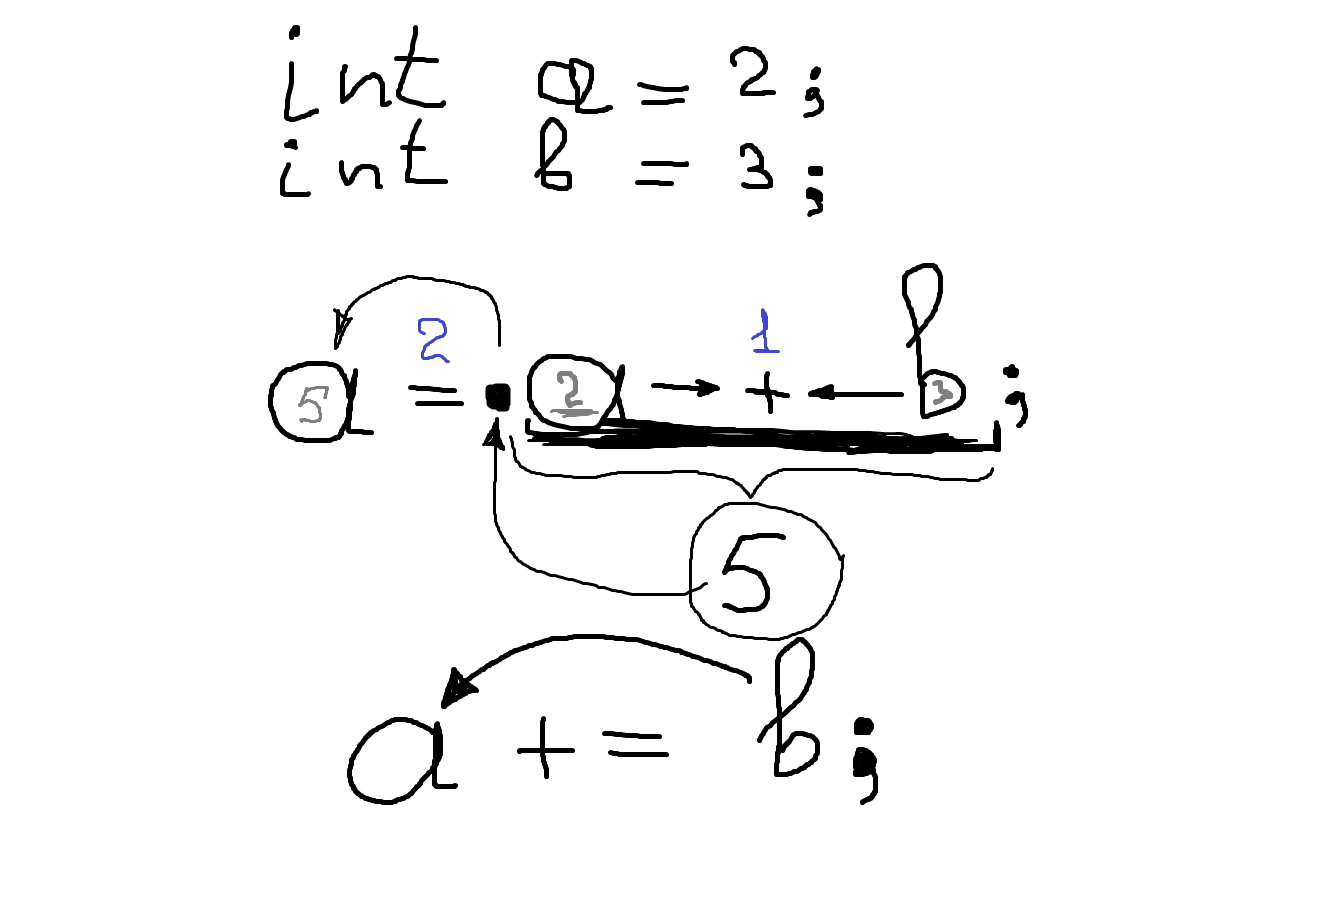 int a = 2;
int b = 3;
2 1
a = a + b;
5 2 3
5
a += b;